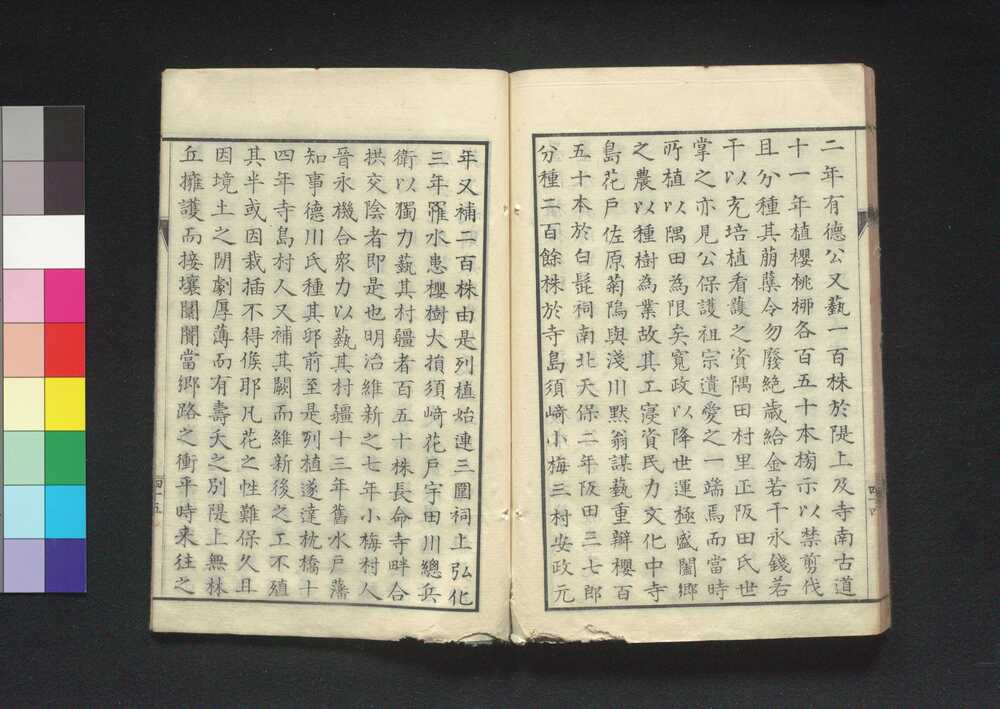 二年有德公又藝一百株於隄上及寺南古道
十一年植櫻桃栁各百五十本榜示以禁剪伐
且分種其萠蘖令勿廢絶歳給金若干永錢若
干以充培植看護之資隅田村里正阪田氏世
掌之亦見公保護祖宗遺愛之一端焉而當時
所植以隅田為限矣寬政以降世運極盛闔郷
之農以種樹為業故其工寖資民力文化中寺
島花戸佐原菊隝與淺川黙翁謀藝重瓣櫻百
五十本於白髭祠南北天保二年阪田三七郎
分種二百餘株於寺島須﨑小梅三村安政元
年又補二百株由是列植始連三圍祠上弘化
三年罹水患櫻樹大損須﨑花戸宇田川總兵
衛以獨力藝其村疆者百五十株長命寺畔合
拱交陰者即是也明治維新之七年小梅村人
晉永機合衆力以藝其村疆十三年舊水戸藩
知事德川氏種其邸前至是列植遂達枕橋十
四年寺島村人又補其闕而維新後之工不殖
其半或因栽插不得候耶凡花之性難保久且
因境土之閒劇厚薄而有壽夭之別隄上無林
丘擁護而接壤闤闠當郷路之衝平時来往之
四十五